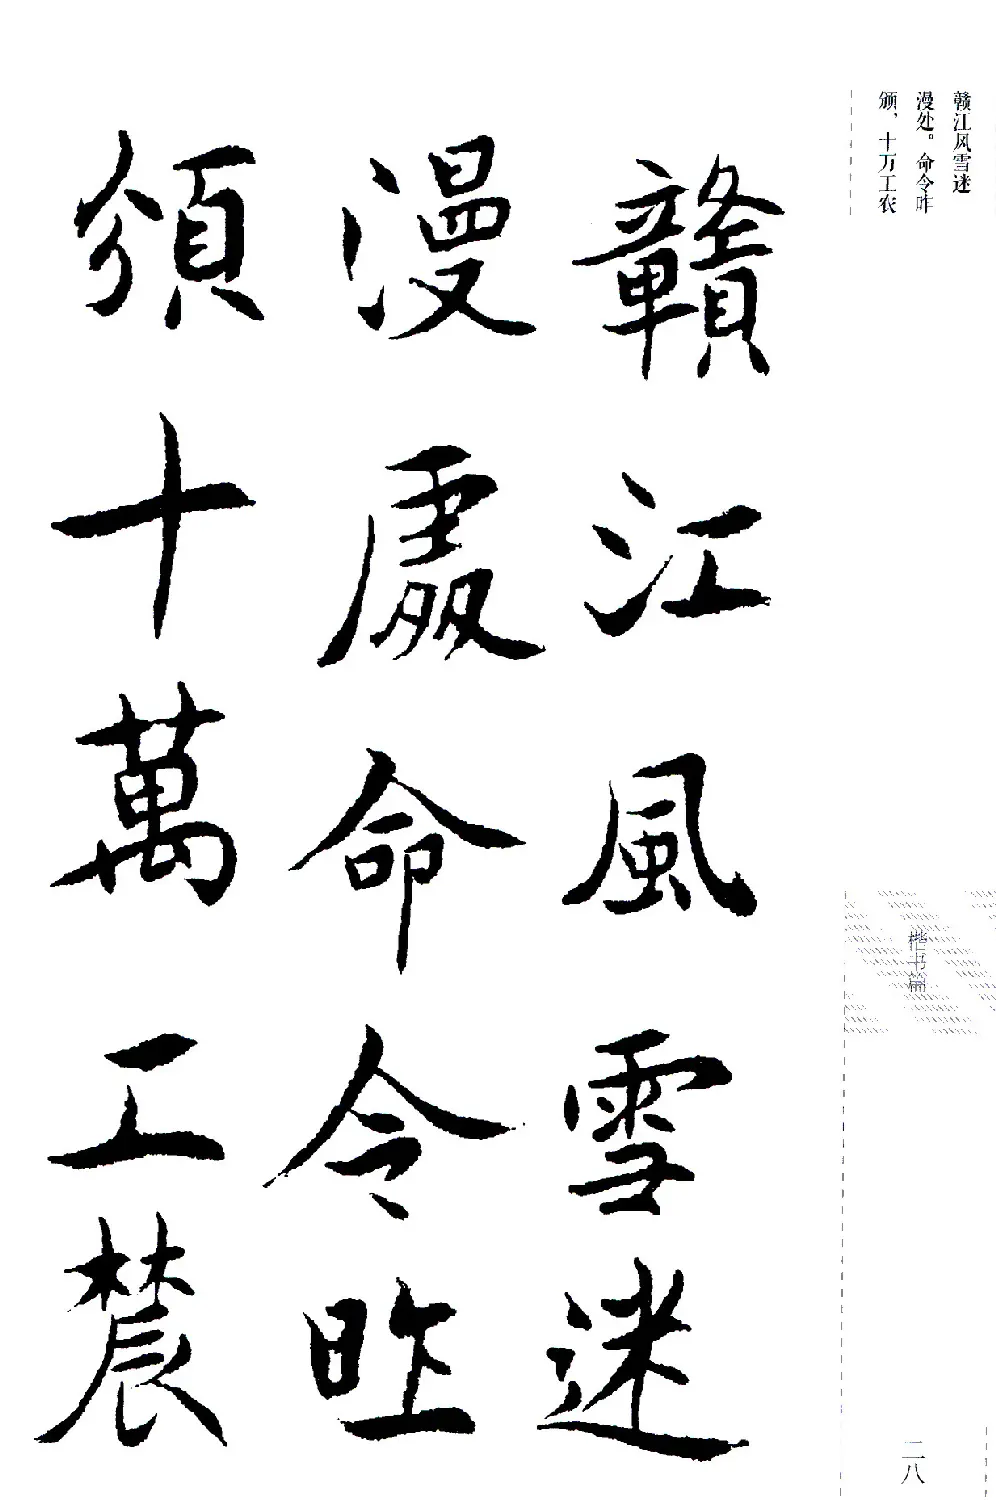 赣江风雪迷
漫处。命令昨
颁，十万工农
贛江風雪迷
漫處命令昨
頒十萬工農
楷书篇
二八